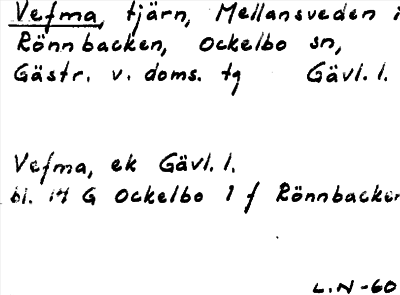 Vefma, tjärn, Mellansveden i
Rönnbacken, Ockelbo sn,
Gästr. v. doms. tg Gävl. l.
Vefma, ek Gävl. l.
bl. 14 G Ockelbo 1 f Rönnbacken
L.N-60